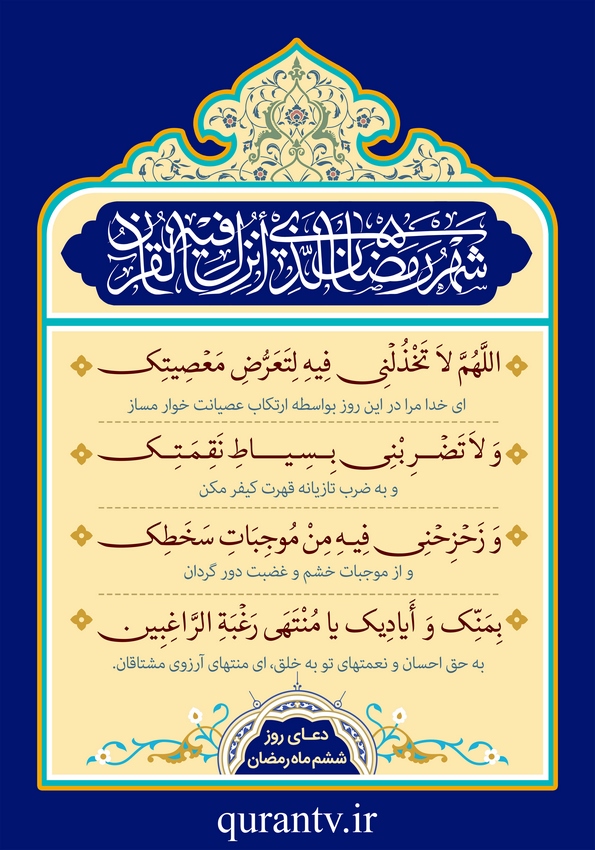 شهر رمضان الذی أنزل فیه القرآن
اللَّهُمَّ لاَ تَخْذُلْنِی فِیهِ لِتَعَرُّضِ مَعْصِیتِک
ای خدا مرا در این روز بواسطه ارتکاب عصیانت خوار مساز
وَ لاَ تَضْرِبْنِی بِسِیاطِ نَقِمَتِک
و به ضرب تازیانه قهرت کیفر مکن
وَ زَحْزِحْنِی فِیهِ مِنْ مُوجِبَاتِ سَخَطِک
و از موجبات خشم و غضبت دور گردان
بِمَنِّک وَ أَیادِیک یا مُنْتَهَی رَغْبَةِ الرَّاغِبِین
به حق احسان و نعمتهای تو به خلق، ای منتهای آرزوی مشتاقان.
دعای روز
ششم ماه رمضان
qurantv.ir